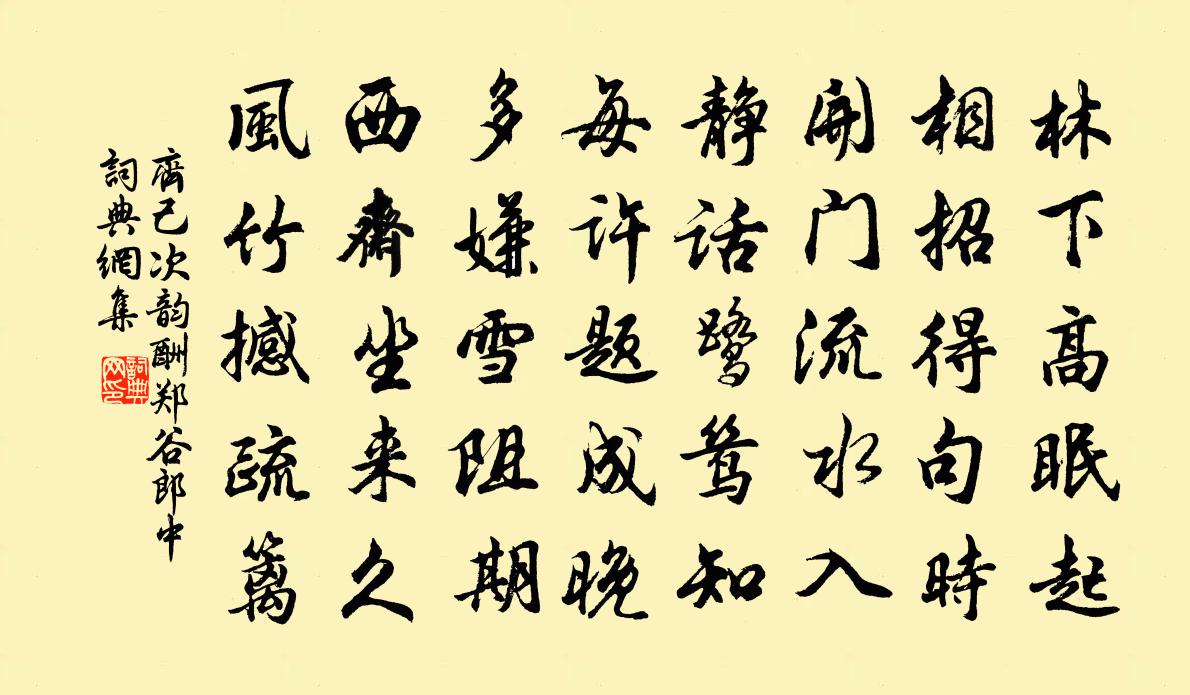 林下高眠起
相招得句時
開门流水入
静话鹭鸶知
每许题成晚
多嫌雪阻期
西齋坐来久
風竹撼疏篱
齊己次韵酬郑谷郎中
詞典網集
詞典网印